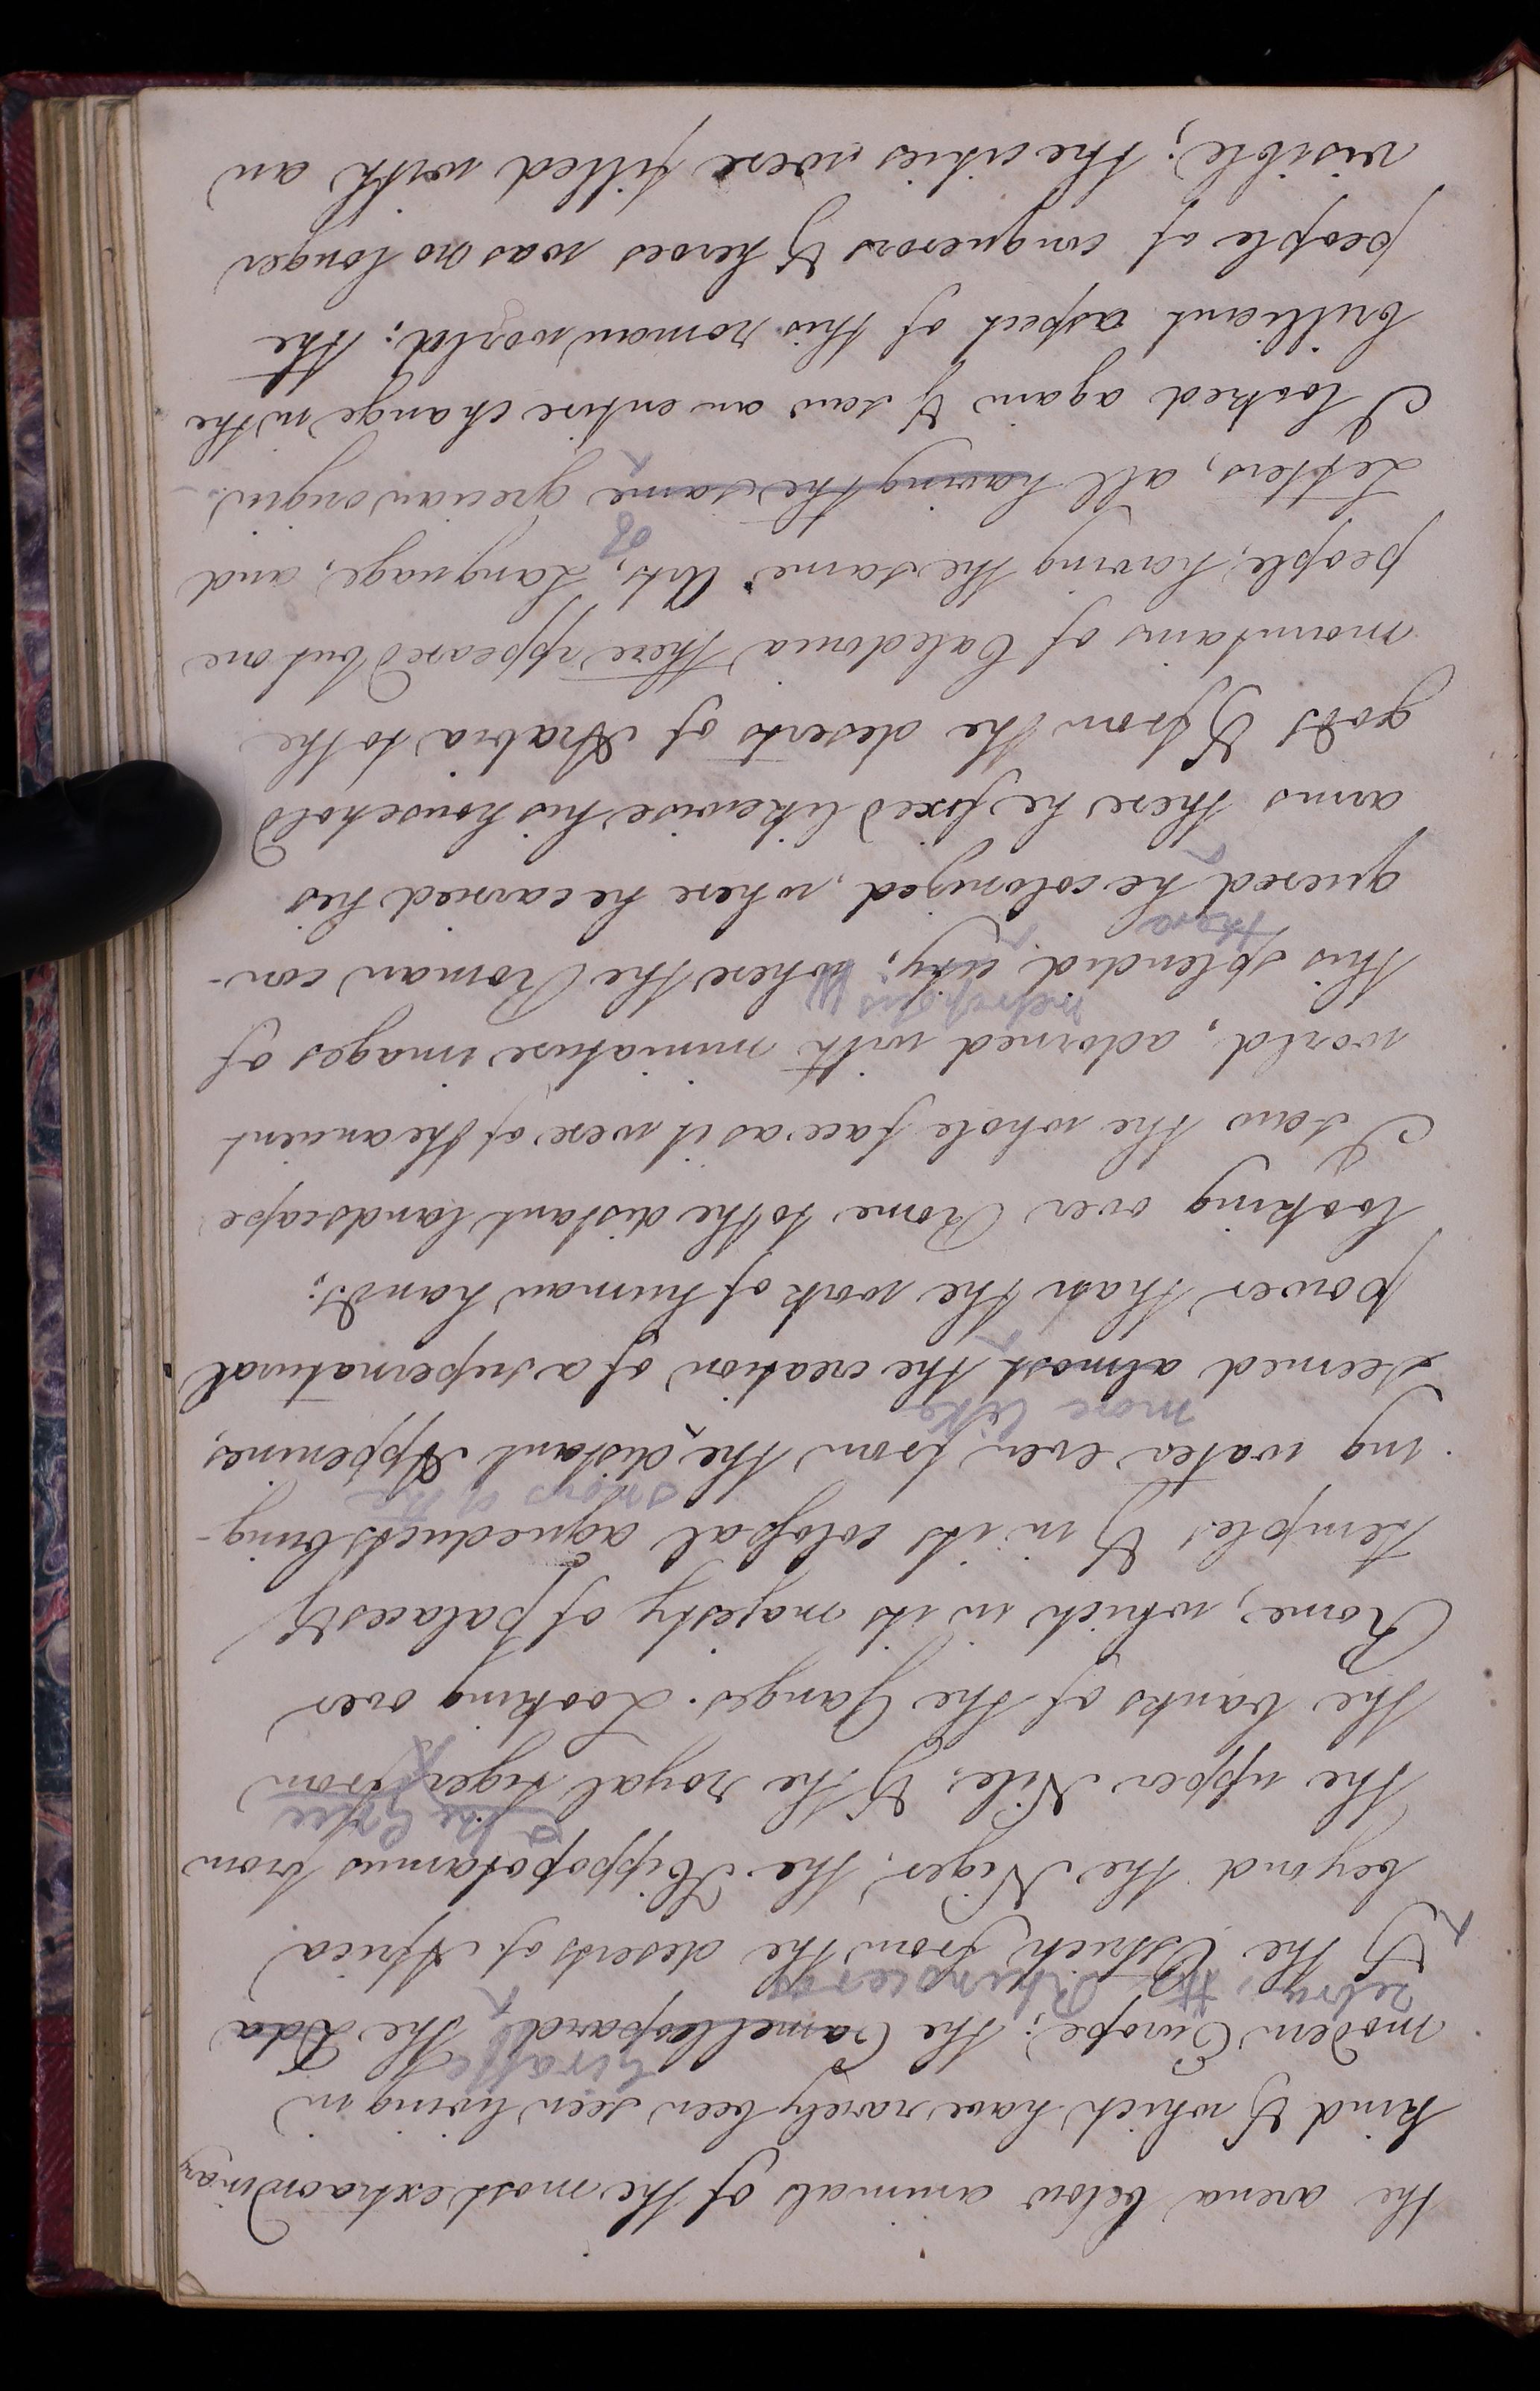 the arena below animals of the most extraordinary
kind & which have rarely been seen living in
giraffe
modern Europe; the Camelleopard the Zebra
zebra; the Rhinoceros
& the Ostrich from the deserts of Africa
beyond the Niger; the Hippopotamus from
& the
the upper Nile; & the royal tiger from
the banks of the Ganges. Looking over
Rome, which in its majesty of palaces &
temples & in its colossal aqueducts bring-
snows of the
ing water even from the distant Appenines,
more like
seemed almost the creation of a supernatural
power than the work of human hands;
looking over Rome to the distant landscape
I saw the whole face as it were of the ancient
world, adorned with miniature images of
metropolis W
this splendid city; where the Roman con-
there
quered he colonized, where he carried his
arms there he fixed likewise his household
gods & from the deserts of Arabia to the
mountains of Caledonia there appeared but one
people, having the same Arts, Language, and
of
Letters, all having the same grecian origin.
I looked again & saw an entire change in the
brilliant aspect of this roman world; the
people of conquerors & heroes was no longer
visible; the cities were filled with an